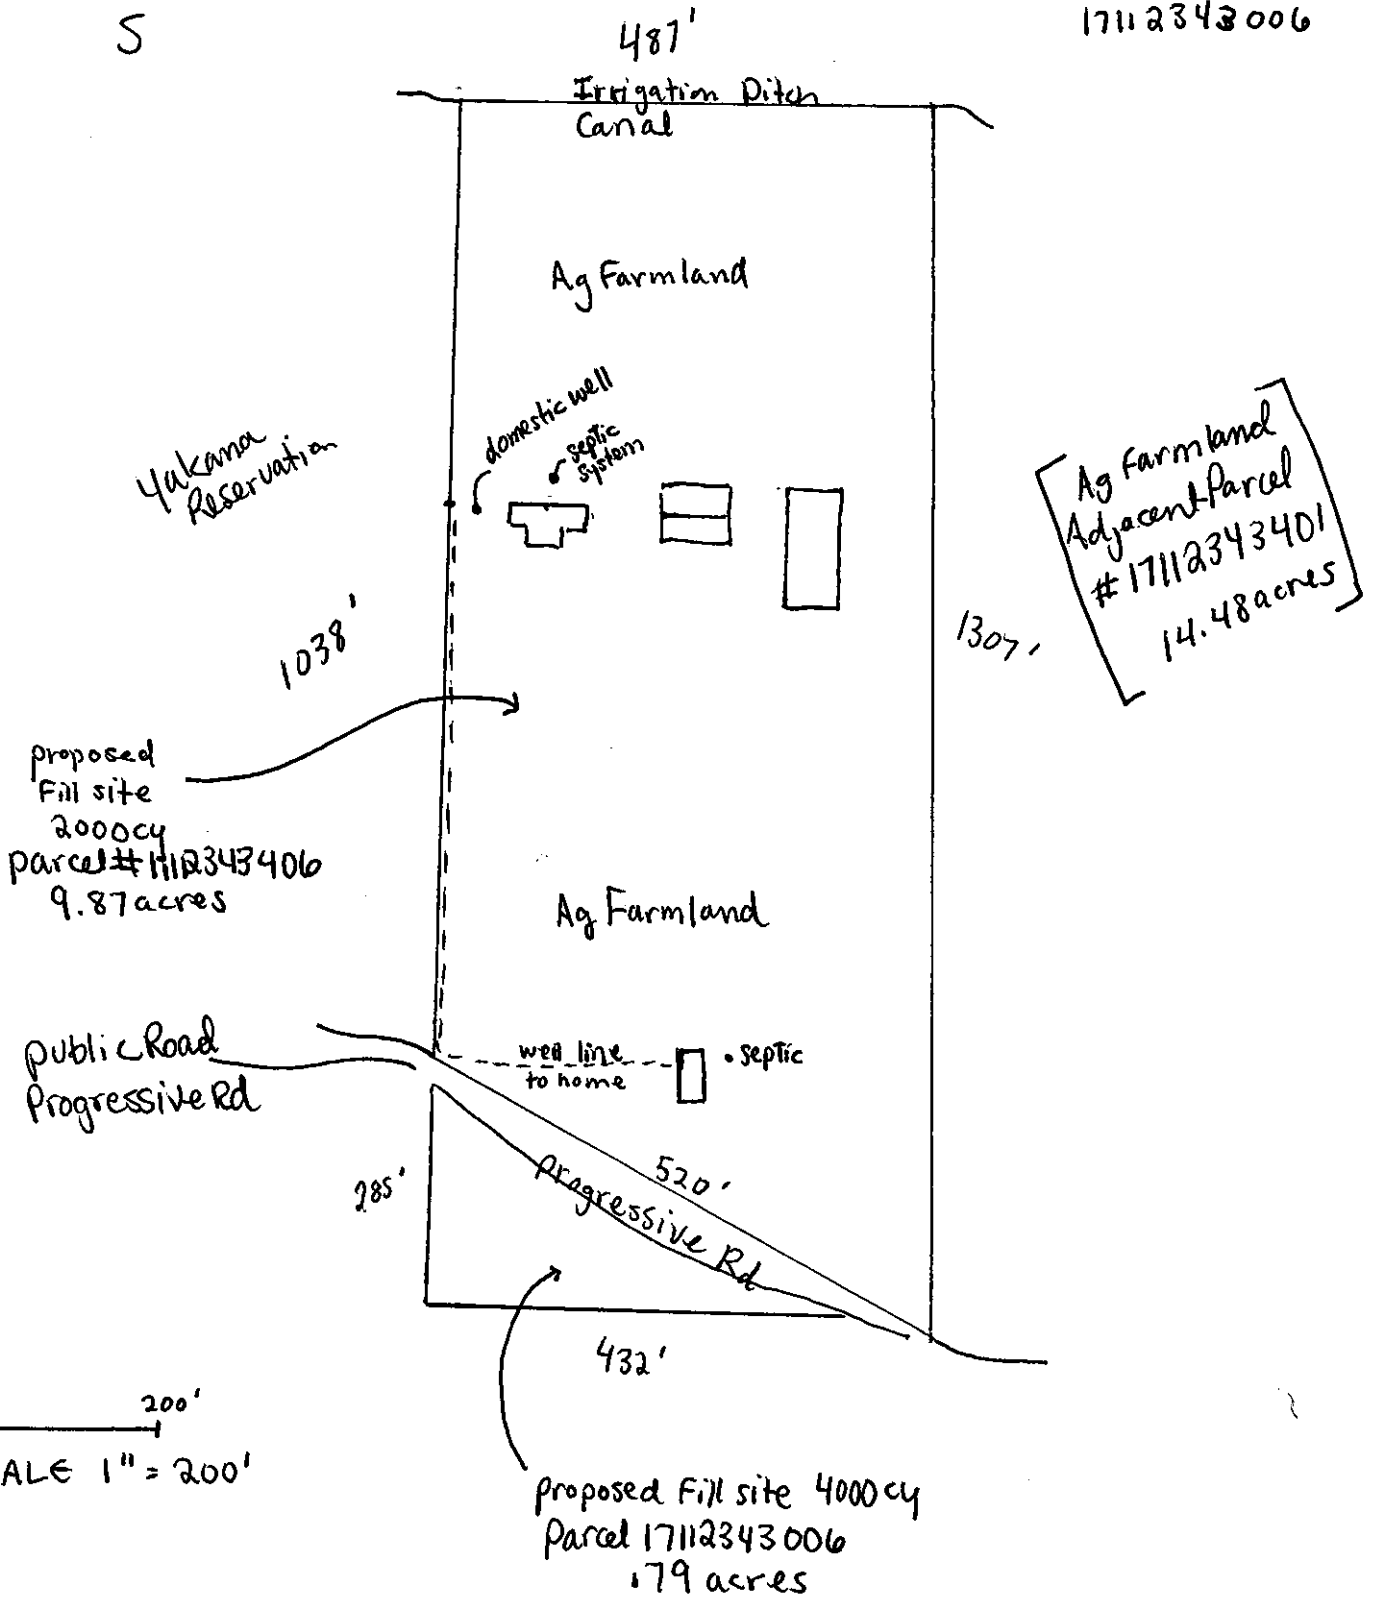 S
487'
17112343006
Irrigation Ditch
Canal
Ag Farmland
domestic well
septic
system
Yakana
Reservation
Ag Farmland
Adjacent Parcel
#17112343401
14.48 acres
1038'
1307'
proposed
Fill site
2000cy
parcel# 17112343406
9.87 acres
Ag Farmland
public Road
Progressive Rd
well line
to home
septic
285'
520'
Progressive Rd
432'
200'
ALE 1" = 200'
proposed Fill site 4000 cy
Parcel 17112343006
.79 acres